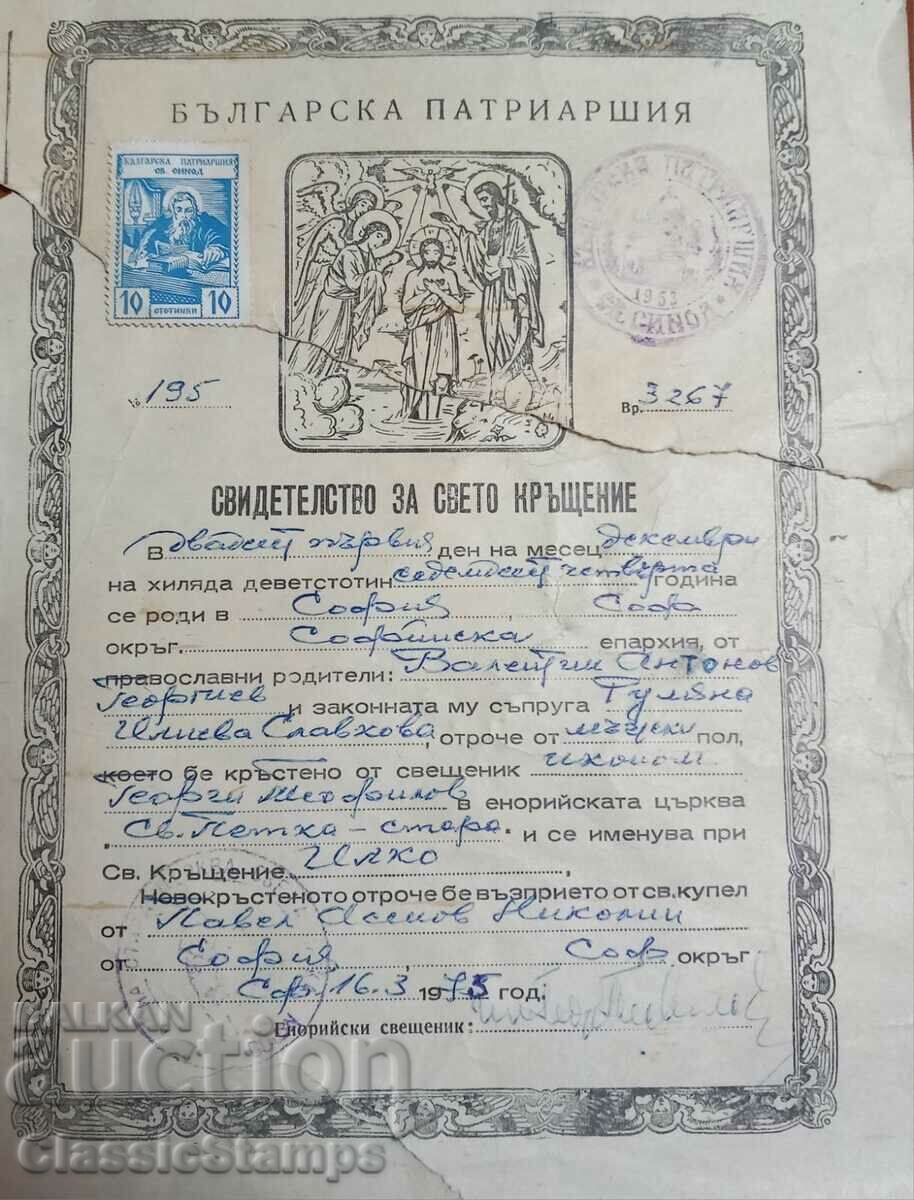 БЪЛГАРСКА ПАТРИАРШИЯ
БЪЛГАРСКА ПАТРИАРШИЯ
СВ. СИНОД
10 10
СТОТИНКИ
ПАТРИАРШИЯ
1953
СИНОД
№ 195
Вр. 3267
СВИДЕТЕЛСТВО ЗА СВЕТО КРЪЩЕНИЕ
В двадесет първия ден на месец декември
на хиляда деветстотин седемдесет четвърта година
се роди в София, Соф
окръг. Софийска епархия, от
православни родители: Валентин Антонов
Георгиев и законната му съпруга Румяна
Илиева Славкова, отроче от мъжски пол,
което бе кръстено от свещеник иконом
Георги Теофилов в енорийската църква
Св. Петка – стара и се именува при
Св. Кръщение Илко,
Новокръстеното отроче бе възприето от св. купел
от Павел Асенов Николин
от София, Соф окръг
Сф. 16.3 1975 год.
Енорийски свещеник:
BALKAN
auction
ClassicStamps